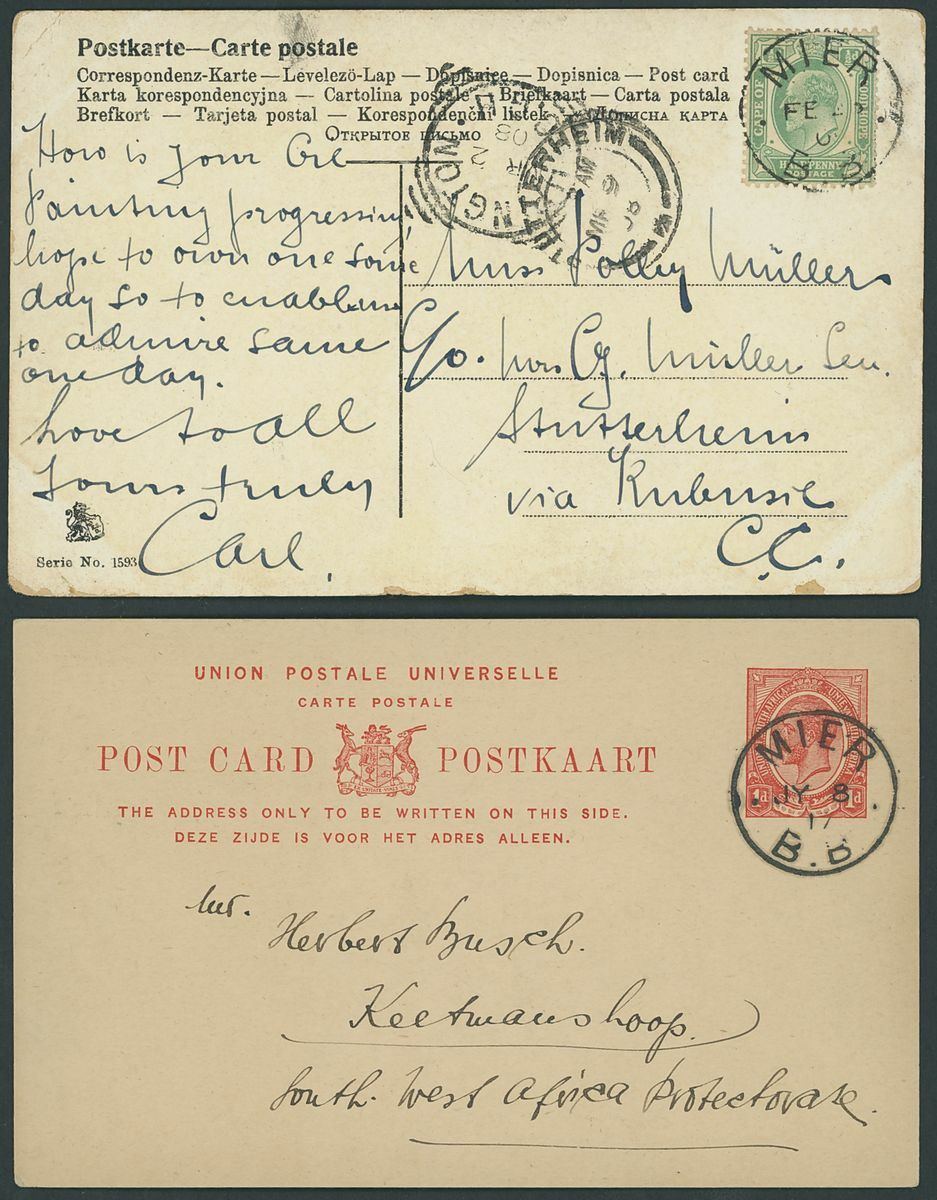 Postkarte—Carte postale
Correspondenz-Karte — Levelezö-Lap — Dopisnice — Dopisnica — Post card
Karta korespondencyjna — Cartolina postale — Briefkaart — Carta postala
Brefkort — Tarjeta postal — Korespondenční listek — Дописна карта
Открытое письмо
CAPE OF GOOD HOPE
HALFPENNY
POSTAGE
MIER
FE
B.B
STUTTERHEIM
AM
08
How is your
Painting progressing
hope to own one some
day so to enable me
to admire same
one day.
Love to All
Yours truly
Carl.
Miss Polley Müller
C/o. Mrs Cg. Müller Sen.
Stutterheim
via Kubusie
C.C.
Serie No. 1593
UNION POSTALE UNIVERSELLE
CARTE POSTALE
POST CARD POSTKAART
THE ADDRESS ONLY TO BE WRITTEN ON THIS SIDE.
DEZE ZIJDE IS VOOR HET ADRES ALLEEN.
1d 1d
MIER
JY 8
17
B.B
Mr.
Herbert Busch.
Keetmanshoop.
South. West Africa Protectorate.